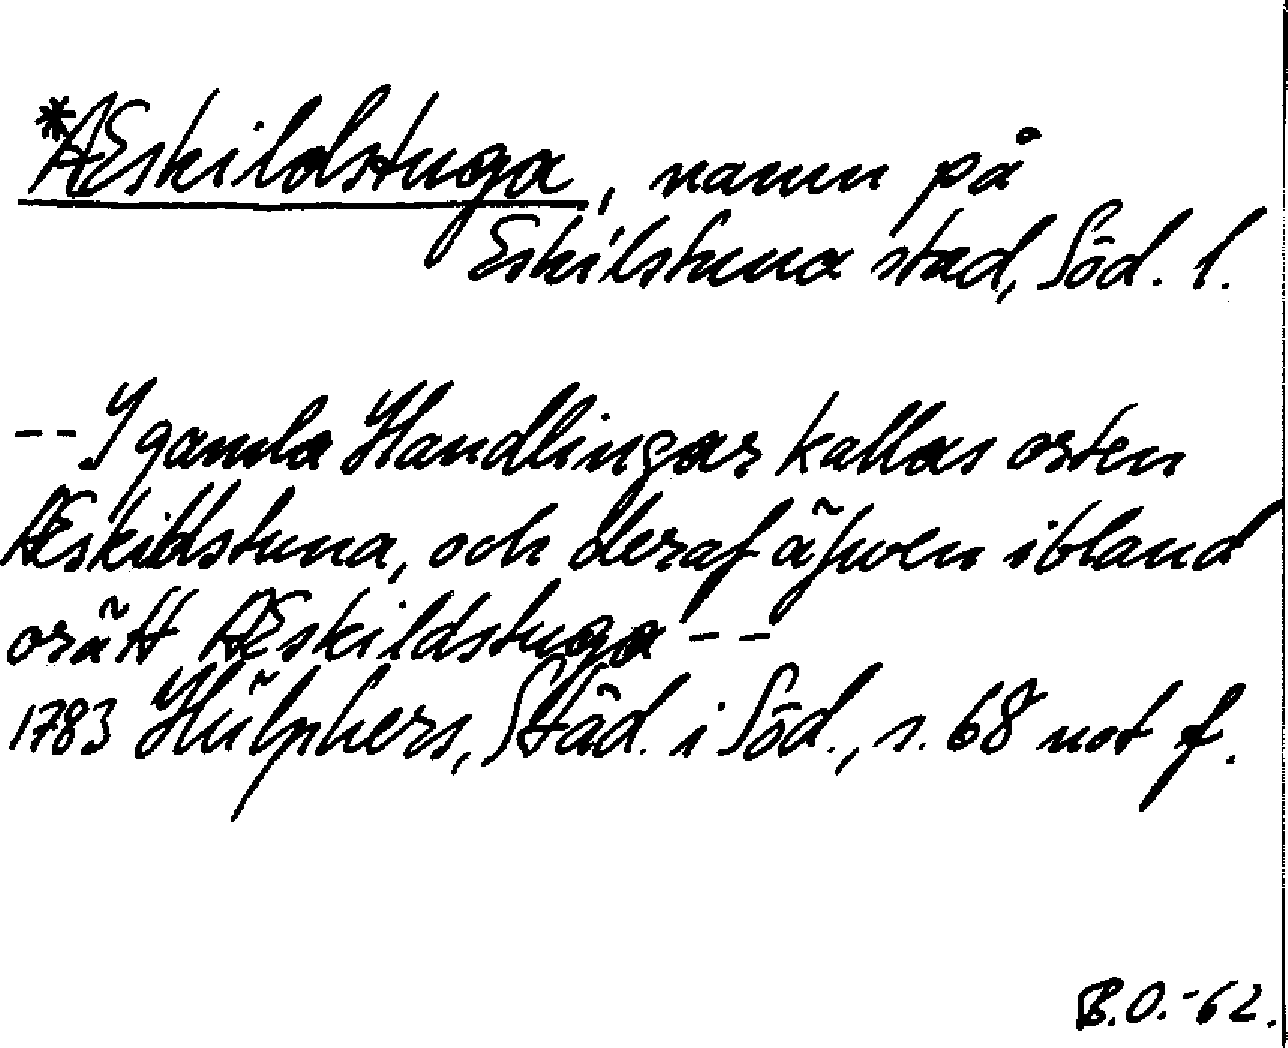 *Æskildstuga, namn på
Eskilstuna stad, Söd. l.
-- I gamla Handlingar kallas orten
Æskildstuna, och deraf äfwen ibland
orätt Æskildstuga --
1783 Hülphers, Städ. i Söd., s. 68 not f.
B.O.-62.